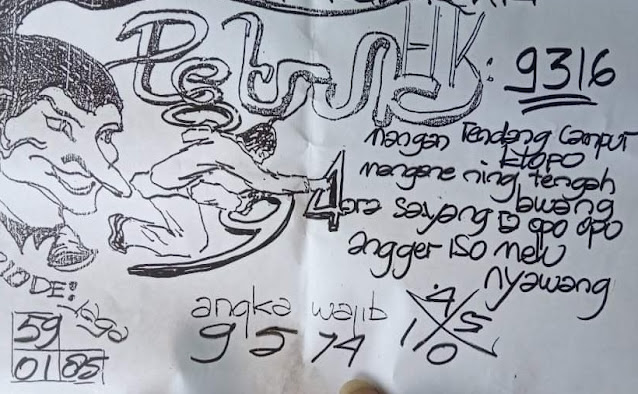 Petruk HK : 9316
mangan rendang campur
klopo
mangane ning tengah
lawang
ora sayang D opo opo
angger iso melu
nyawang
4
IODE: Jaga
59
01 85
angka wajib
9 5 7 4
4 5
1 0